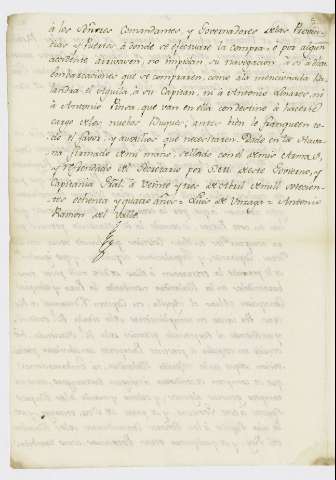 à los Señores Comandantes, y Governadores de las Provin-
cias, y Puertos, à donde se efectuare la compra, ò por algun
accidente arrivaren, no impidan su navegacion, ni à dhas
embarcaciones que se compraren, como à la mencionada Ba-
landra el Aguila, à su Capitan, ni à Antonio Linares, ni
à Antonio Ponca, que van en ella con destino à hacerse
cargo de los nuebos Buques, antes bien le franqueen to-
do el favor, y auxilios que necesitaren. Dado en la Hava-
na firmado de mi mano, sellado con el de mis Armas,
y refrendado del Secretario por S.M. de este Govierno, y
Capitania Gral. à veinte y tres de Abril de mill setecien-
tos ochenta y quatro años = Luis de Unzaga = Antonio
Ramon del Valle